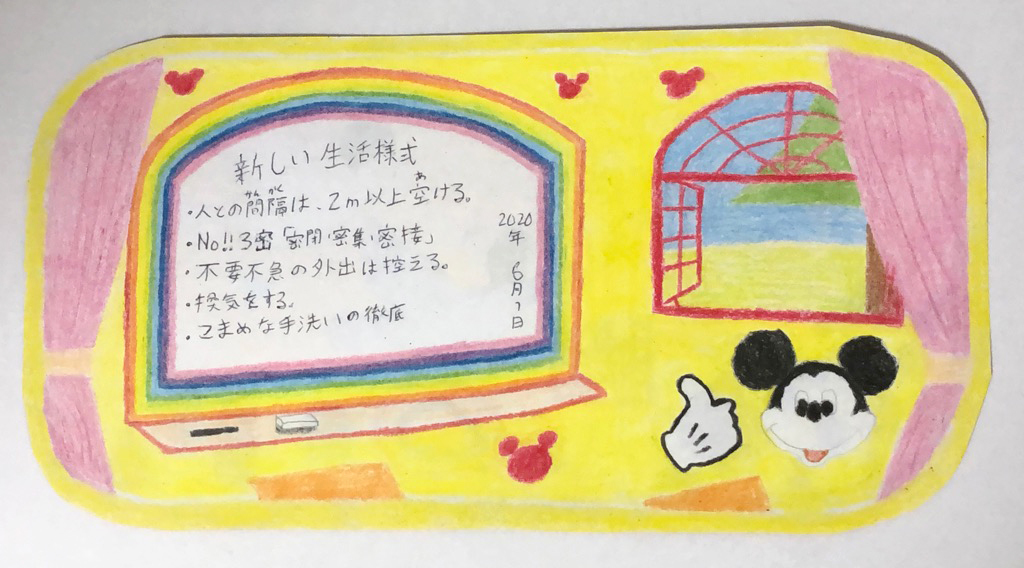 新しい生活様式
・人との間隔は、2m以上空ける。
・No!!3密「密閉・密集・密接」
・不要不急の外出は控える。
・換気をする。
・こまめな手洗いの徹底
2020年6月1日